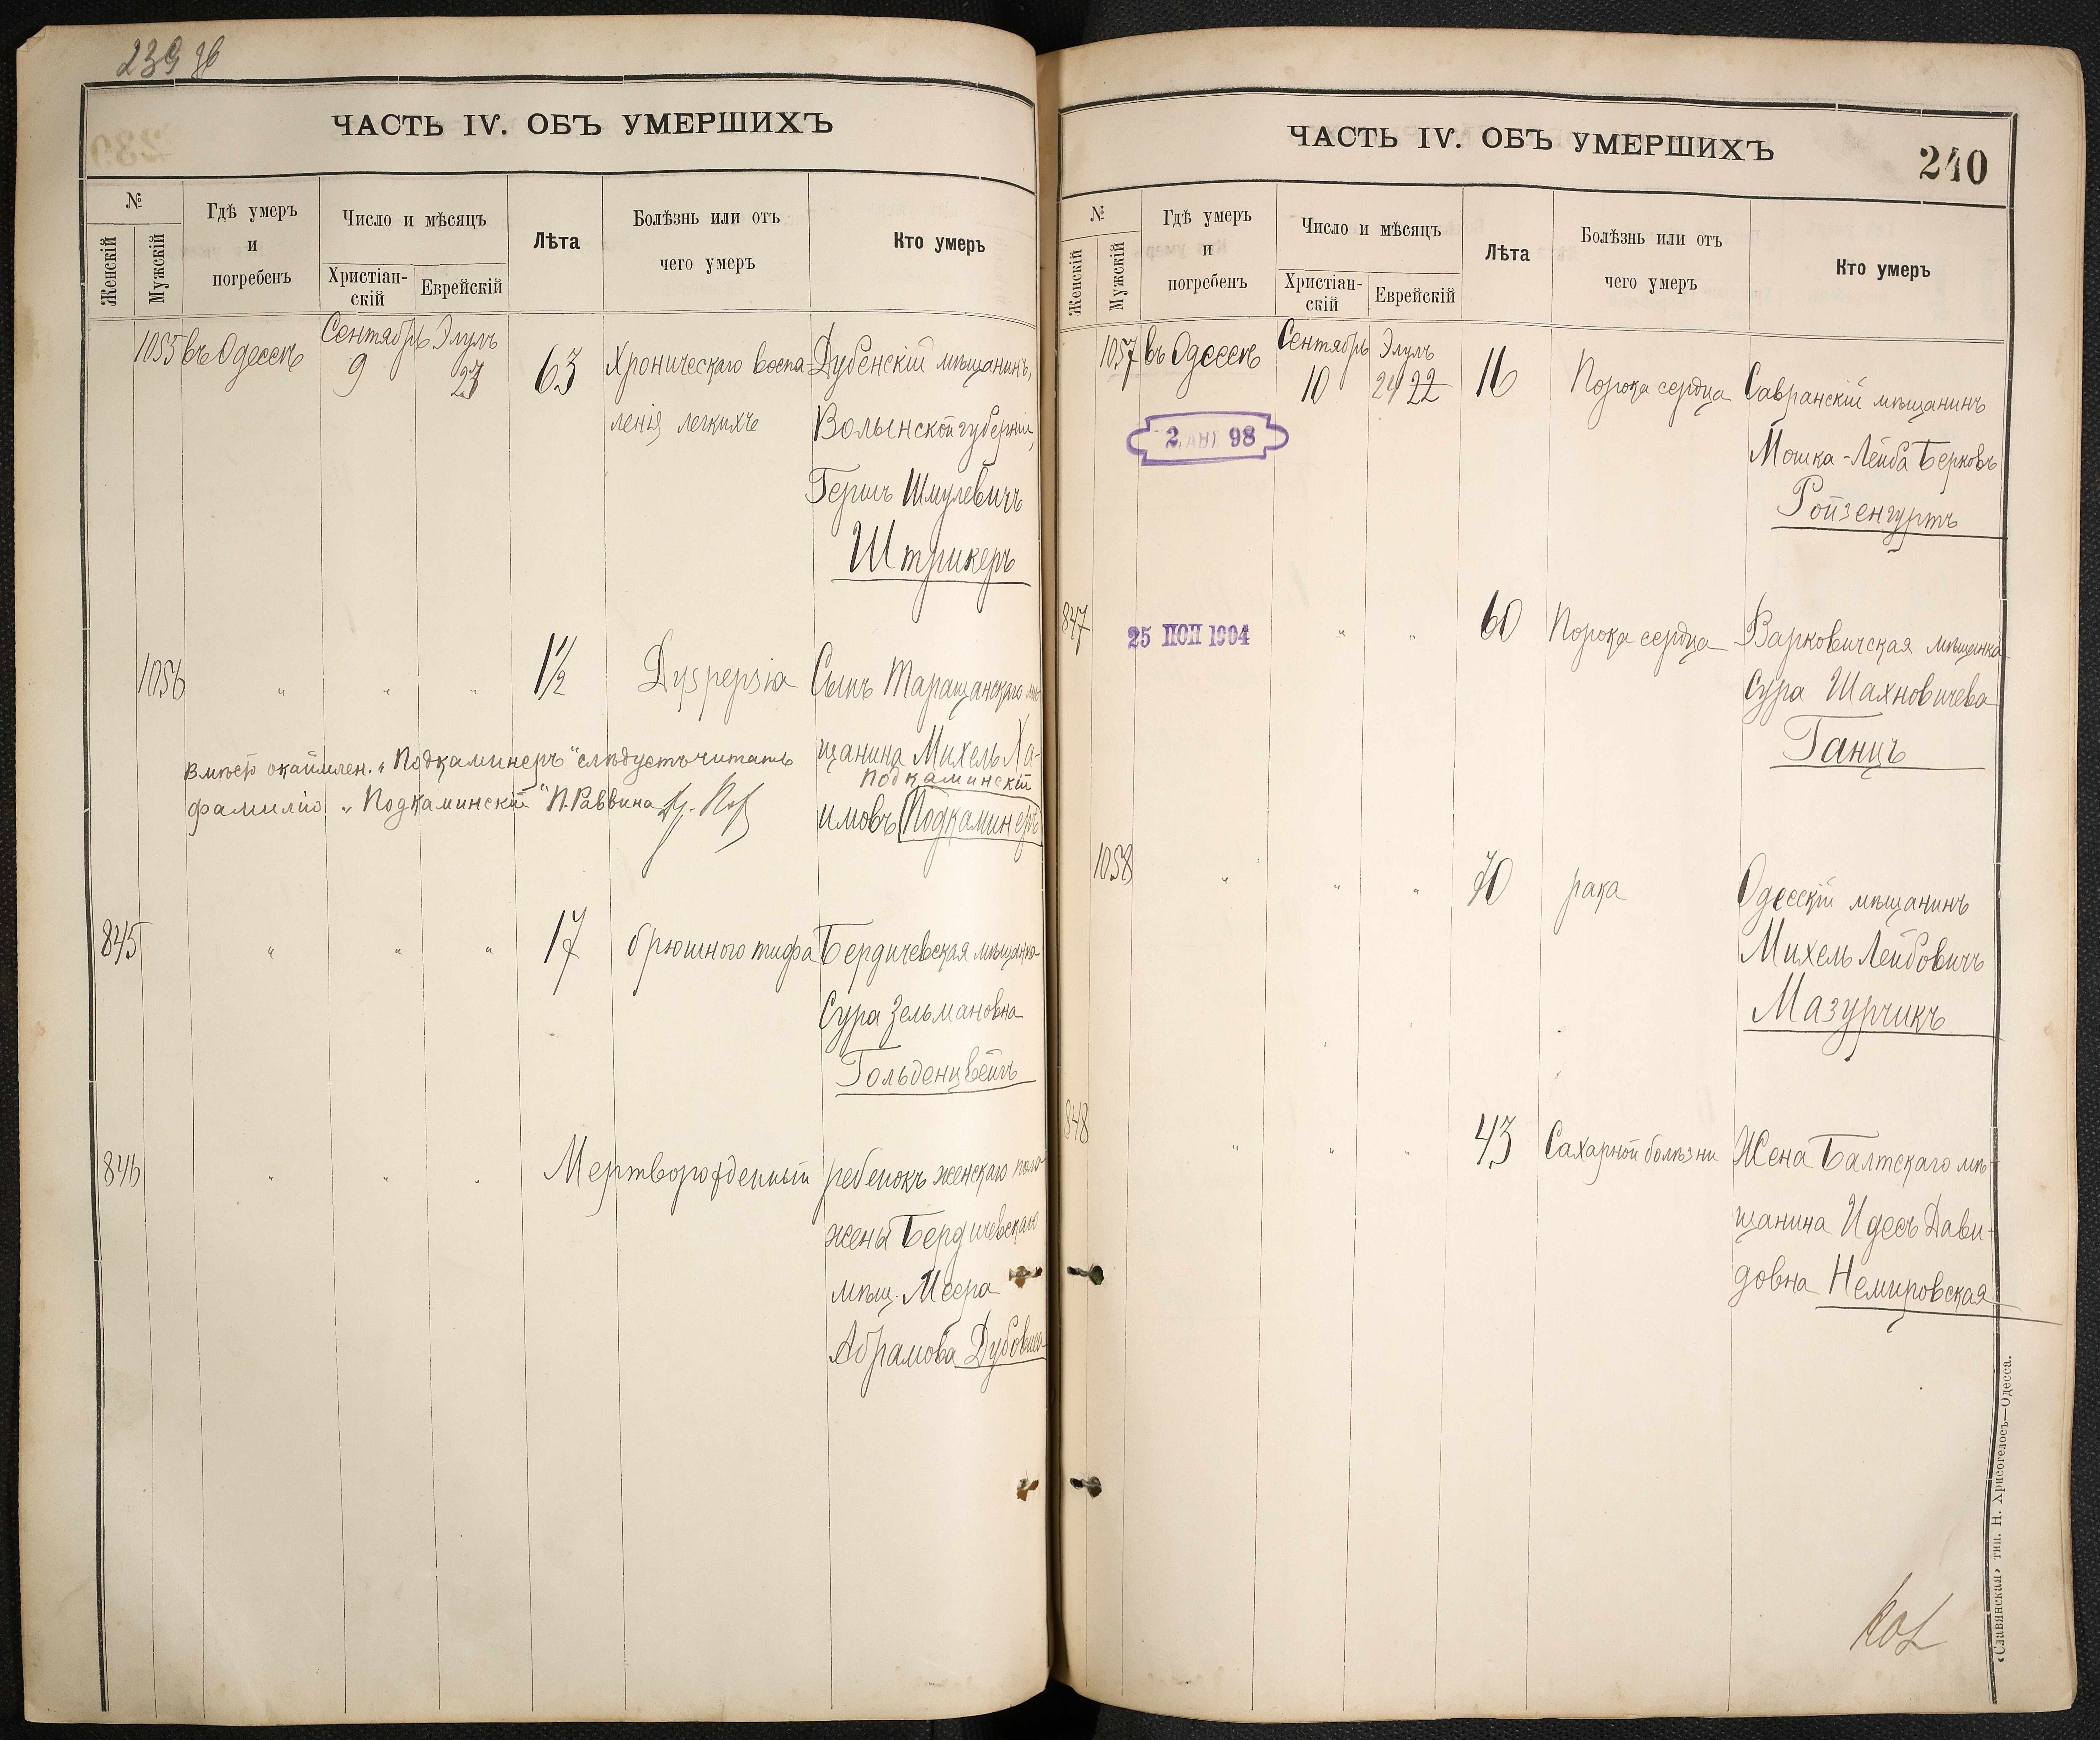 239 об
ЧАСТЬ IV. ОБЪ УМЕРШИХЪ
№
Женскій
Мужскій
Гдѣ умеръ
и
погребенъ
Число и мѣсяцъ
Христіан-
скій
Еврейскій
Лѣта
Болѣзнь или отъ
чего умеръ
Кто умеръ
1055 въ Одессѣ Сентябрь 9 Элулъ 23 63 Хроническаго воспа- Дубенскій мѣщанинъ,
ленія легкихъ Волынской губерніи,
Гершъ Шмулевичъ
Штрикеръ
1056 " " " 1½ Dyspepsia Сынъ Таращанскаго мѣ-
щанина Михель Ха-
Подкаминскій
имовъ Подкаминеръ
вмѣсто окаймлен. „Подкаминеръ“ слѣдуетъ читать
фамилію „Подкаминскій“ И. Раввина
845 " " " 17 брюшного тифа Бердичевская мѣщанка
Сура Зельмановна
Гольденцвейгъ
846 " " " Мертворожденный ребенокъ женскаго пола
жены Бердичевскаго
мѣщ. Меера
Абрамова
240
ЧАСТЬ IV. ОБЪ УМЕРШИХЪ
№
Женскій
Мужскій
Гдѣ умеръ
и
погребенъ
Число и мѣсяцъ
Христіан-
скій
Еврейскій
Лѣта
Болѣзнь или отъ
чего умеръ
Кто умеръ
1057 въ Одессѣ Сентябрь 10 Элулъ 24 22 16 Порока сердца Савранскій мѣщанинъ
Мошка-Лейба Берковъ
Ройзенгуртъ
98
847 25 1904 " " 60 Порока сердца Варковичская мѣщанка
Сура Шахновичева
Ганцъ
1058 " " " 70 рака Одесскій мѣщанинъ
Михель Лейбовичъ
Мазурчикъ
848 " " " 43 Сахарной болѣзни Жена Балтскаго мѣ-
щанина Идесъ Дави-
довна Немировская
«Славянская» тип. Н. Хрисогелосъ—Одесса.